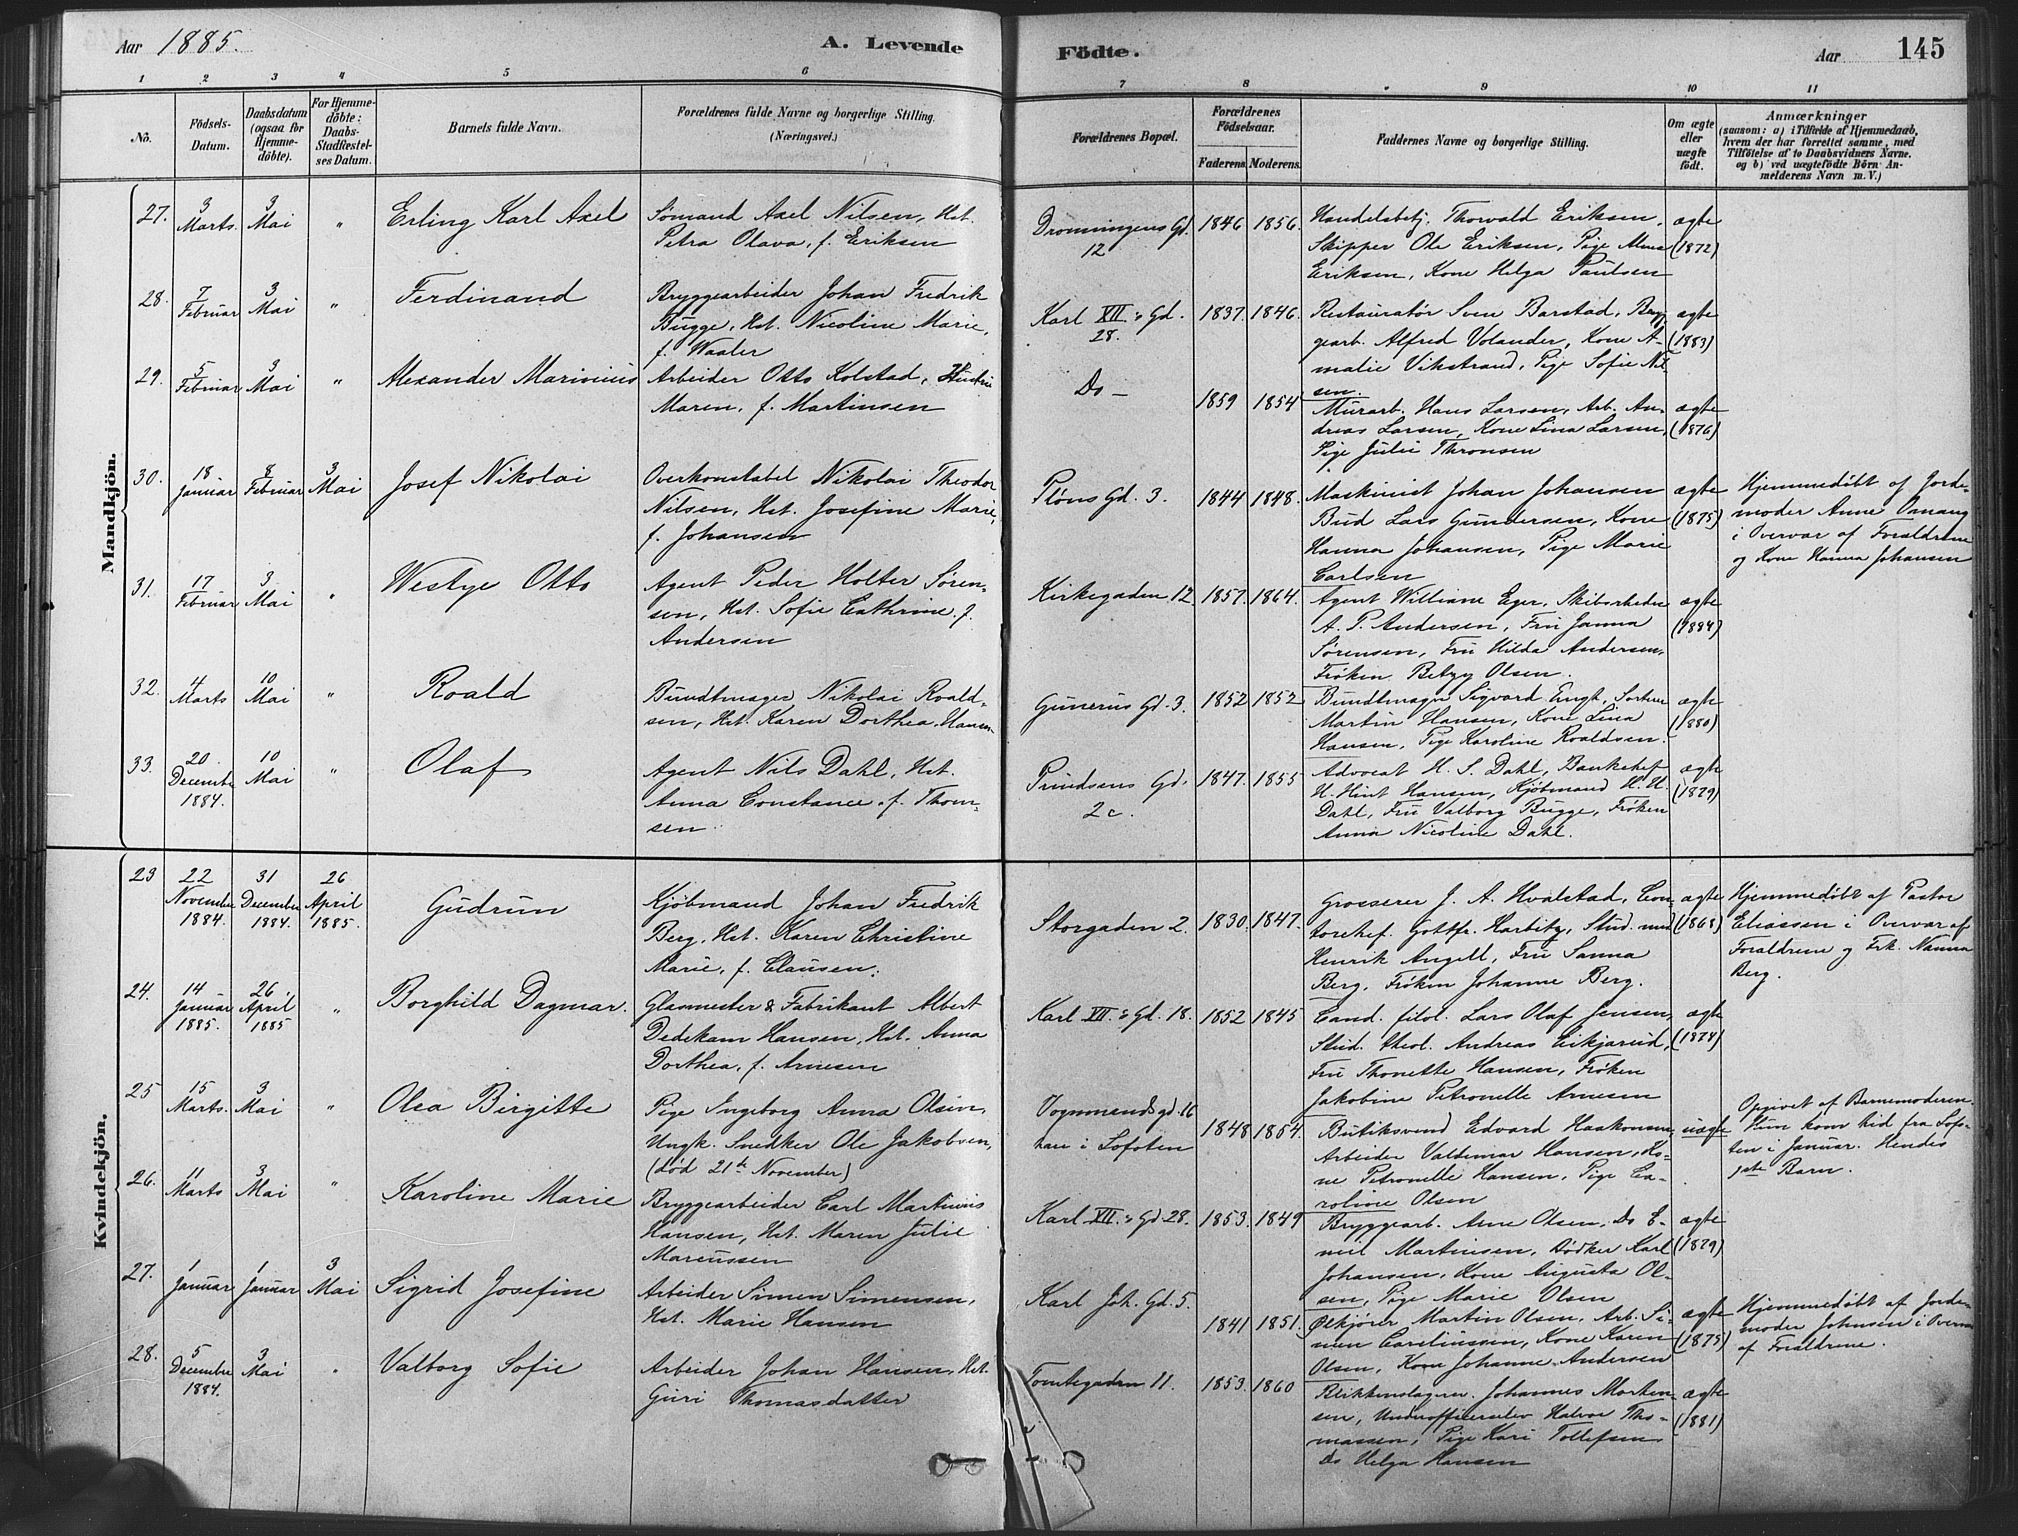 Aar 1885.
A. Levende
Födte.
Aar
145
1 2 3 4 5 6 7 8 9 10 11
No.
Födsels-Datum.
Daabsdatum (ogsaa for Hjemme-döbte).
For Hjemme-döbte: Daabs-Stadfestel-ses Datum.
Barnets fulde Navn.
Forældrenes fulde Navne og borgerlige Stilling.
(Næringsvei.)
Forældrenes Bopæl.
Forældrenes Födselsaar.
Faderens. Moderens.
Faddernes Navne og borgerlige Stilling.
Om ægte eller uægte födt.
Anmærkninger
(saasom: a) i Tilfælde af Hjemmedaab,
hvem der har forrettet samme, med
Tilföielse af to Daabsvidners Navne,
og b) ved uægtefödte Börn An-
melderens Navn m. V.)
Mandkjön.
27. 3 Marts. 3 Mai " Erling Karl Axel
Sømand Axel Nilsen, Hst.
Petra Olava, f. Eriksen
Dronningens Gd. 12
1846 1856.
Handelsbetj. Thorvald Eriksen,
Skipper Ole Eriksen, Pige Alma
Eriksen, Kone Helga Paulsen
ægte (1872)
28. 7 Februar 3 Mai " Ferdinand
Bryggearbeider Johan Fredrik
Bugge, Hst. Nicoline Marie,
f. Waaler
Karl XII's Gd. 28.
1837. 1846.
Restauratør Sven Barstad, Bryg-
gearb. Alfred Volander, Kone A-
malie Vikstrand, Pige Sofie Nil-
sen
ægte (1883)
29. 5 Februar 3 Mai " Alexander Marinius
Arbeider Otto Kolstad, Hustru
Maren, f. Martinsen
Do —
1859 1854
Murarb. Hans Larsen, Arb. An-
dreas Larsen, Kone Lina Larsen,
Pige Julie Thronsen
ægte (1876)
30. 18 Januar 8 Februar 3 Mai Josef Nikolai
Overkonstabel Nikolai Theodor
Nilsen, Hst. Josefine Marie,
f. Johansen
Pløns Gd. 3.
1844 1848.
Maskinist Johan Johansen
Bud Lars Gundersen, Kone
Hanna Johansen, Pige Marie
Carlsen
ægte (1875)
Hjemmedøbt af Jorde-
moder Anne Onang
i Overvær af Forældrene
og Kone Hanna Johansen
31. 17 Februar 3 Mai " Westye Otto
Agent Peder Holter Søren-
sen, Hst. Sofie Cathrine f.
Andersen
Kirkegaden 12.
1857. 1864.
Agent William Eger, Skibsrheder
A. P. Andersen, Fru Janna
Sørensen, Fru Hilda Andersen,
Frøken Betzy Olsen.
ægte (1884)
32. 4 Marts 10 Mai " Roald
Bundtmager Nikolai Roald-
sen, Hst. Karen Dorthea Hansen
Gunerus Gd. 3.
1852 1852
Bundtmager Sigvard Engh,
Martin Hansen, Kone Lina
Hansen, Pige Karoline Roaldsen.
ægte (1880)
33. 20 Decembr 1884. 10 Mai " Olaf
Agent Nils Dahl, Hst.
Anna Constance, f. Thom-
sen
Prindsens Gd. 2c.
1847. 1855
Advocat H. S. Dahl, Bankchef
H. Hansen, Kjøbmand H. H.
Dahl, Fru Valborg Bugge, Frøken
Anna Nicoline Dahl.
ægte (1879)
Kvindekjön.
23 22 November 1884. 31 December 1884. 26 April 1885. Gudrun
Kjøbmand Johan Fredrik
Berg, Hst. Karen Christine
Marie, f. Clausen.
Storgaden 2.
1830. 1847.
Grosserer J. A. Hvalstad, Con-
torchef. Gottfr. Harbitz, Stud. med
Henrik Angell, Fru Sanna
Berg, Frøken Johanne Berg.
ægte (1868)
Hjemmedøbt af Pastor
Eliassen i Overvær af
Forældrene og Frk. Nanna
Berg.
24. 14 Januar 1885. 26 April 1885 " Borghild Dagmar.
Glasmester & Fabrikant Albert
Dedekam Hansen, Hst. Anna
Dorthea, f. Arnesen
Karl XII's Gd. 18.
1852 1845
Cand. filol. Lars Olaf Jensen,
Stud. theol. Andreas Eikjarud,
Fru Thonette Hansen, Frøken
Jakobine Petronelle Arnesen
ægte (1878)
25 15 Marts. 3 Mai " Olea Birgitte
Pige Ingeborg Anna Olsen,
Ungk. Snedker Ole Jakobsen,
(død 21de November)
Vognmandsgd. 16
han i Lofoten
1848 1854.
Butiksvend Edvard Haakonsen,
Arbeider Valdemar Hansen, Ko-
ne Petronelle Hansen, Pige Ca-
roline Olsen
uægte
Opgivet af Barnemoderen.
Hun kom hid fra Lofo-
ten i Januar. Hendes
Barn.
26. 11 Marts 3 Mai " Karoline Marie
Bryggearbeider Carl Martinius
Hansen, Hst. Maren Julie
Marcussen
Karl XII's Gd. 28.
1853. 1849
Bryggearb. Arne Olsen, Do E-
mil Martinsen, Bødker Karl
Johansen, Kone Augusta Ol-
sen, Pige Marie Olsen
ægte (1879)
27. 1 Januar 1 Januar 3 Mai Sigrid Josefine
Arbeider Simen Simensen,
Hst. Marie Hansen
Karl Joh. Gd. 5.
1841 1851.
Ølkjører Martin Olsen, Arb. Si-
men Carelinssen, Kone Karen
Olsen, Kone Johanne Andersen
ægte (1875)
Hjemmedøbt af Jorde-
moder Johnsen i Overvær
af Forældrene.
28. 5 Decembre 1884. 3 Mai " Valborg Sofie
Arbeider Johan Hansen, Hst.
Guri Thomasdatter
Tomtegaden 11.
1853. 1860
Blikkenslager Johannes Morten-
sen, Underofficerselev Halvor Tho-
massen, Pige Kari Tollefsen
Do Helga Hansen
ægte (1881)